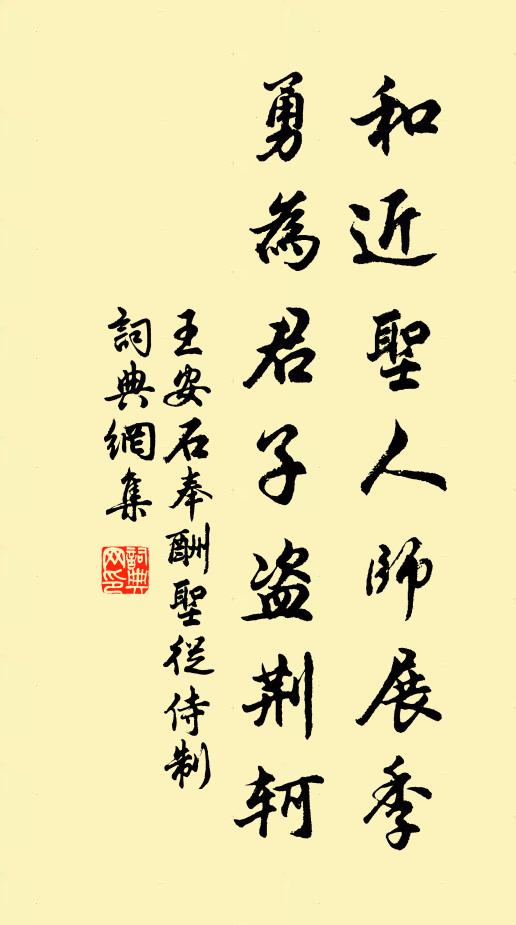 和近聖人師展季
勇為君子盗荆軻
王安石奉酬聖從侍制
詞典網集
詞典網印